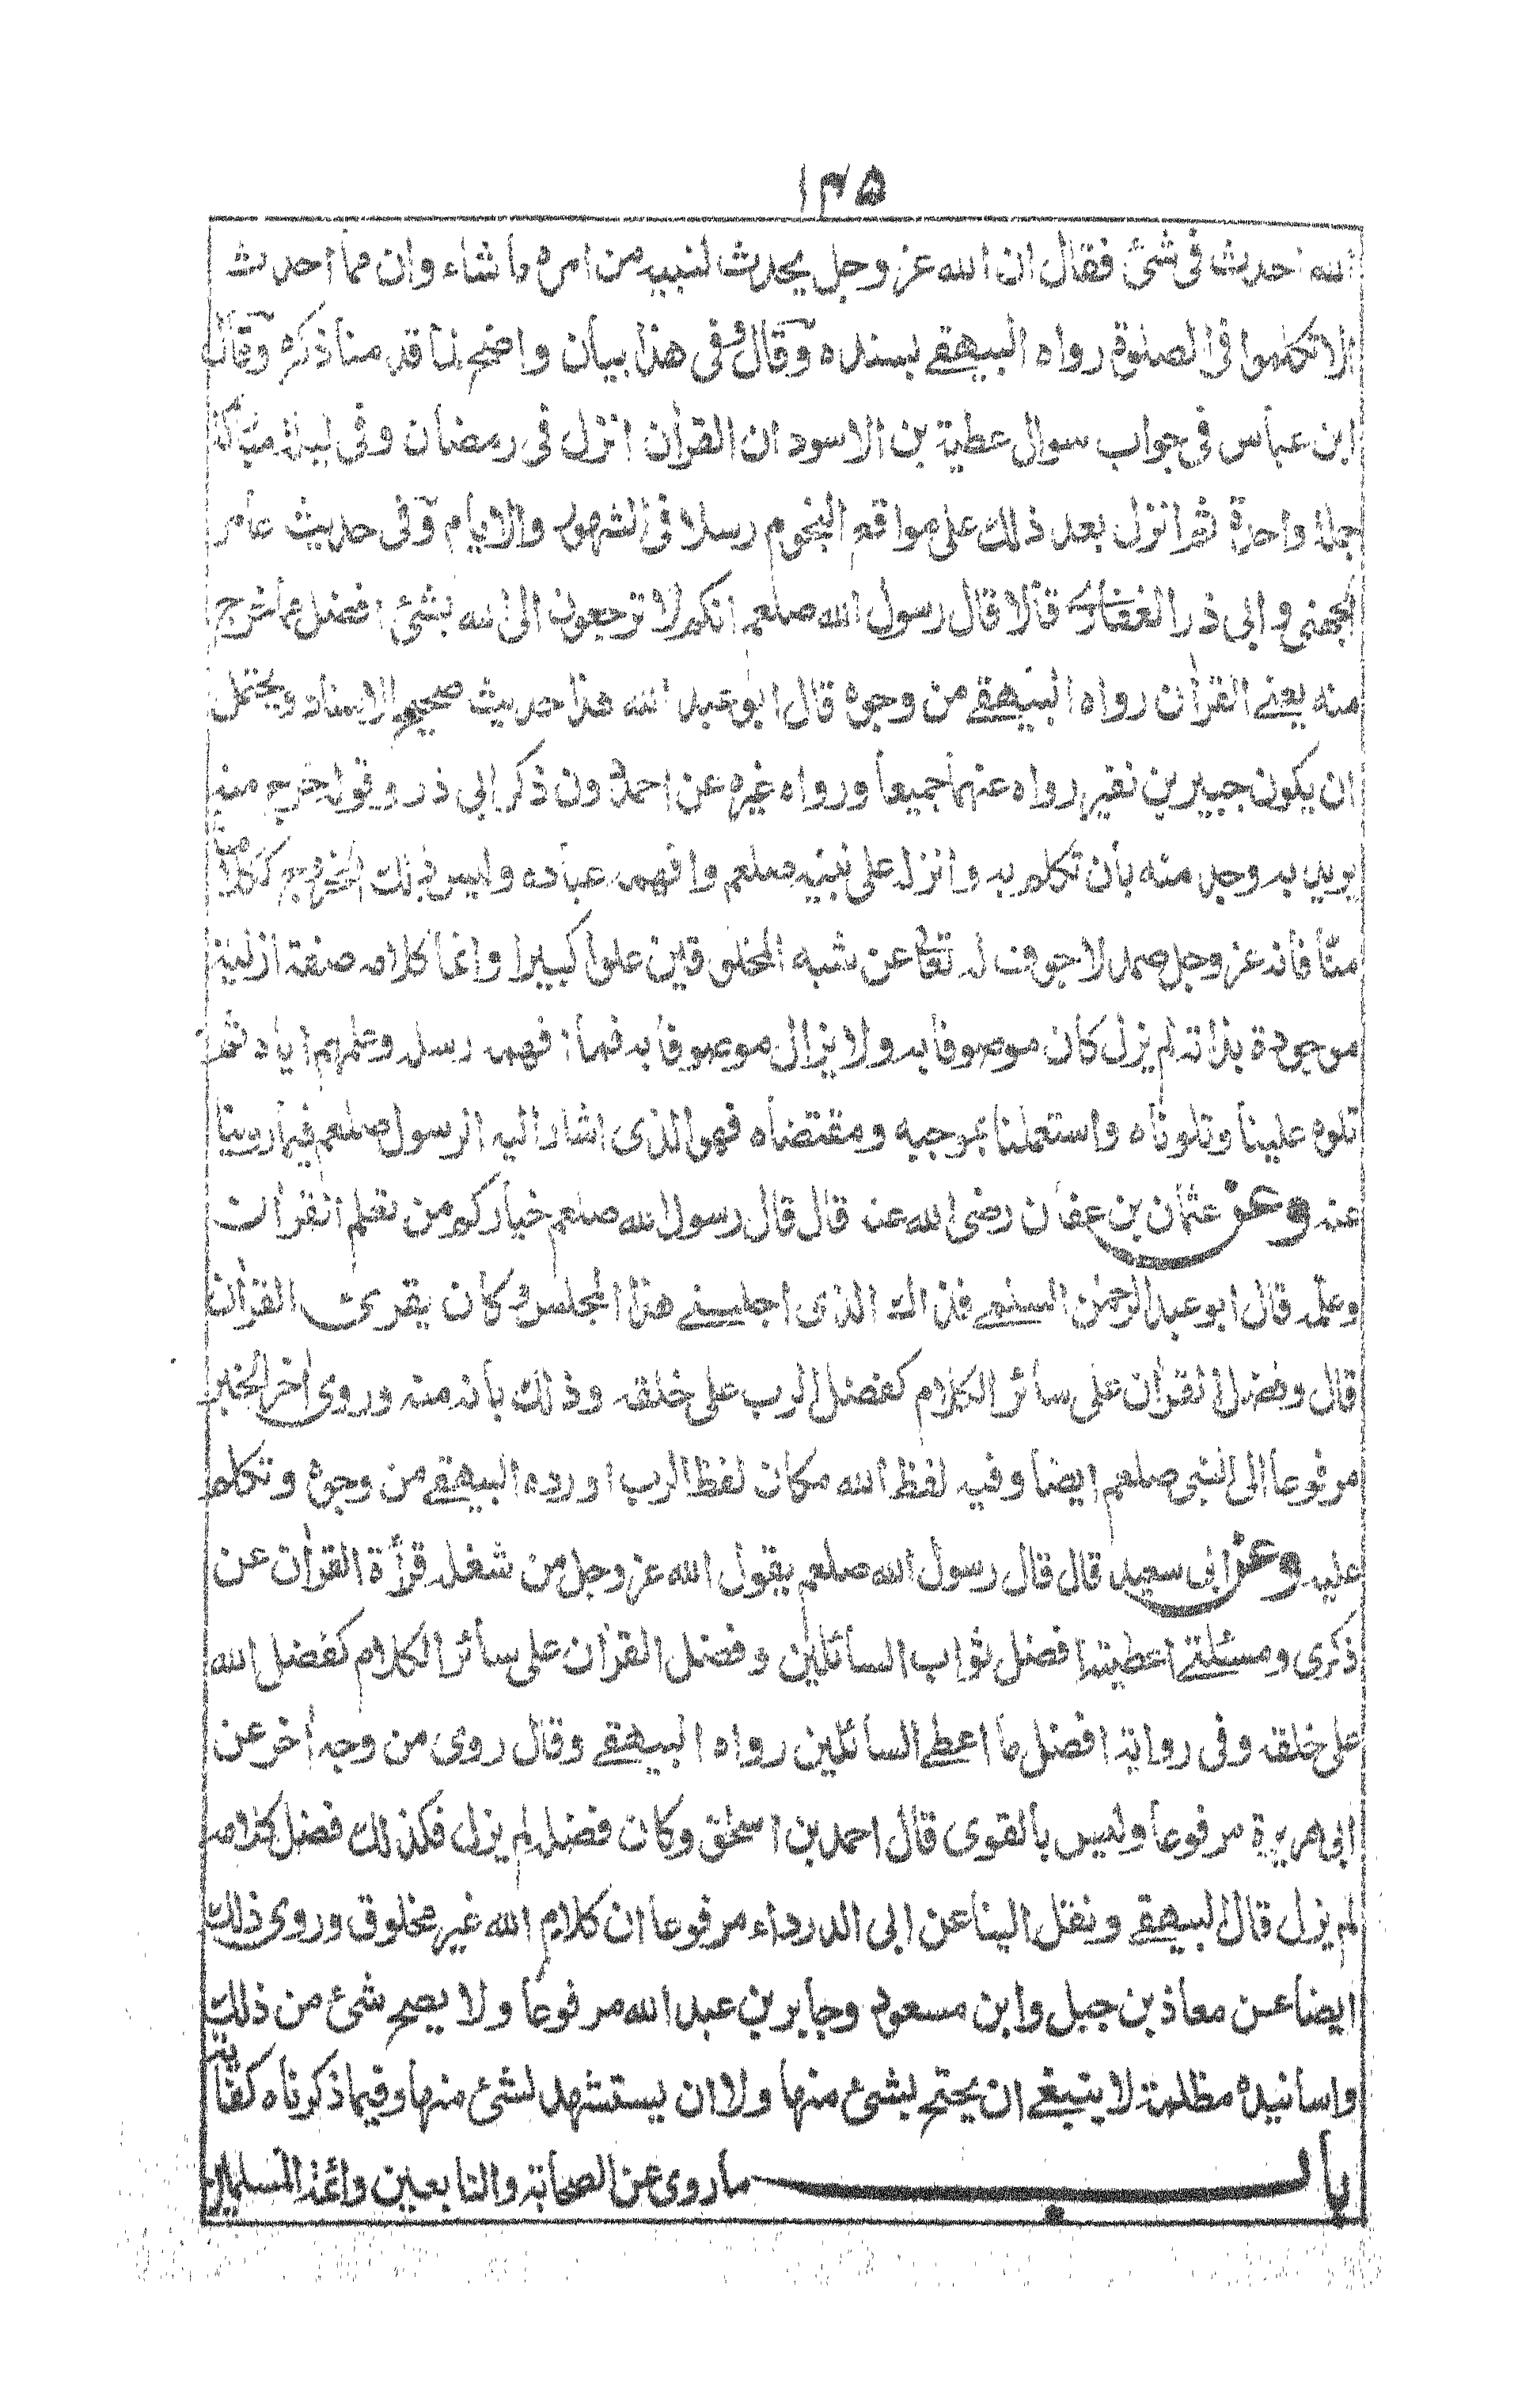 ١٣٥
الله احدث فى شئ فقال ان الله عز وجل يحدث لنبيه من امره ما شاء وان مما احدث
الا تكلموا فى الصلوة رواه البيهقے بسنده وقال وفى هذا بيان واضح لما قد منا ذكره وقال
ابن عباس فى جواب سوال عطية بن الاسود ان القرأن انزل فى رمضان وفى ليلة مباركة
جملة واحدة ثم انزل بعد ذلك على مواقع النجوم رسلا فى الشهور والايام وفى حديث عامر
الجهنى و ابى ذر الغفارى قالا قال رسول الله صلعم انكم لا ترجعون الى الله بشئ افضل مما خرج
منه يعنے القرأن رواه البيهقے من وجوه قال ابو عبد الله هذا حديث صحيح الاسناد ويحتمل
ان يكون جبير بن نفير رواه عنهما جميعا ورواه غيره عن احمد دون ذكر ابى ذر وقوله خرج منه
يريد به وجد منه بأن تكلم به وانزله على نبيه صلعم وافهمه عباده وليس ذلك الخروج ككلامنا
منّا فأنه عز وجل صمد لا جوف له تعالى عن شبه المخلوقين علوا كبيرا وانما كلامه صفة ازلية
موجودة بذاته لم يزل كان موصوفا به ولا يزال موصوفا به فما افهمه رسله وعلمهم اياه ثم
تلوه علينا وتلوناه واستعملنا بموجبه ومقتضاه فهو الذى اشار اليه الرسول صلعم فيما روينا
عنه وعن عثمان بن عفان رضى الله عنه قال قال رسول الله صلعم خياركم من تعلم القرأن
وعلمه قال ابو عبد الرحمن السلمے فذاك الذى اجلسنے هذا المجلس وكان يقرئ القرأن
قال وفضل القرأن على سائر الكلام كفضل الرب على خلقه وذلك بانه منه وروى أخر الخبر
مرفوعا الى النبى صلعم ايضا وفيه لفظ الله مكان لفظ الرب اورده البيهقے من وجوه وتكلم
عليه وعن ابى سعيد قال قال رسول الله صلعم يقول الله عز وجل من شغله قرأة القرأن عن
ذكرى ومسئلتے اعطيته افضل ثواب السائلين وفضل القرأن على سائر الكلام كفضل الله
على خلقه وفى رواية افضل ما اعطے السائلين رواه البيهقے وقال روى من وجه أخر عن
ابى هريرة مرفوعا وليس بالقوى قال احمد بن اسحق وكان فضله لم يزل فكذلك فضل كلامه
لم يزل قال البيهقے ونقل الينا عن ابى الدرداء مرفوعا ان كلام الله غير مخلوق وروى ذلك
ايضا عن معاذ بن جبل وابن مسعود وجابر بن عبد الله مرفوعا ولا يصح شئ من ذلك
واسانيده مظلمة لا ينبغے ان يحتج بشئ منها ولا ان يستشهد لشئ منها وفيما ذكرناه كفاية
باب ما روى عن الصحابة والتابعين وائمة المسلمين